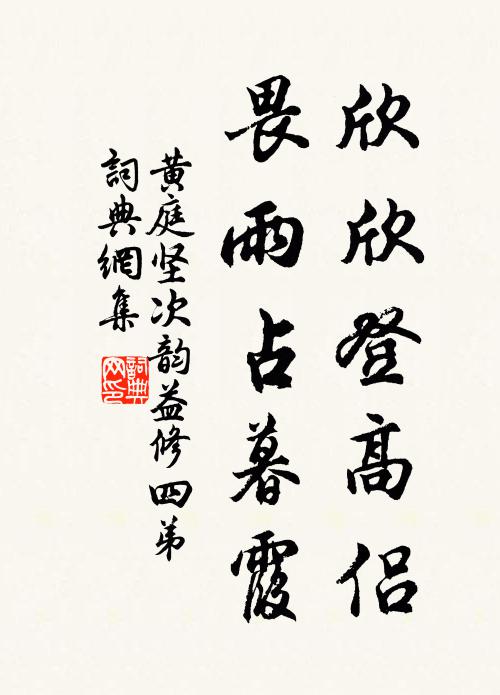 欣欣登高侣
畏雨占暮霞
黄庭坚次韵益修四弟
詞典網集
詞典网印